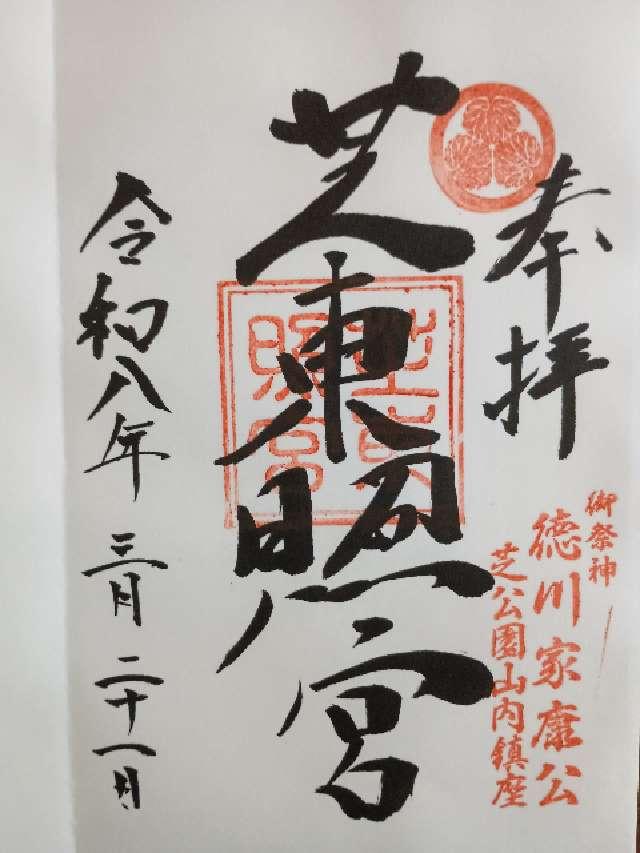 奉拝
御祭神
徳川家康公
芝公園山内鎮座
芝東照宮
芝東照宮
令和八年 三月 二十一日